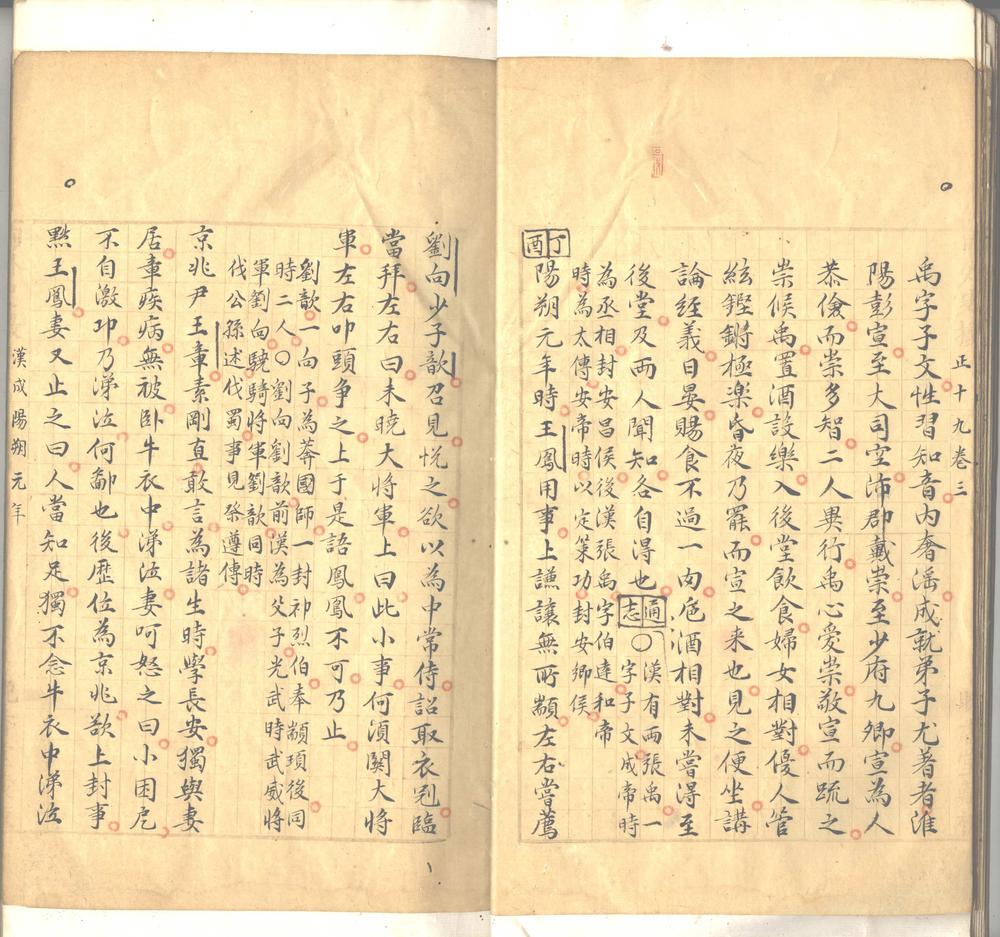 正十九卷三
禹字子文性習知音内奢滛成就弟子尤著者淮
陽彭宣至大司空沛郡戴崇至少府九卿宣為人
恭儉而崇多智二人異行禹心愛崇敬宣而疏之
崇候禹置酒設樂入後堂飲食婦女相對優人管
絃鏗鏘極楽昏夜乃罷而宣之来也見之便坐講
論経義日晏賜食不過一肉巵酒相對未嘗得至
後堂及兩人聞知各自得也 通志 〇漢有兩張禹一字子文成帝時
為丞相封安昌侯後漢張禹字伯達和帝
時為太傅安帝時以定策功封安鄉侯
丁酉
陽朔元年時王鳳用事上謙讓無所顓左右嘗薦
劉向少子歆召見悅之欲以為中常侍詔取衣冠臨
當拜左右曰未曉大將軍上曰此小事何須関大將
軍左右叩頭争之上于是語鳳鳳不可乃止
劉歆一向子為莽國師一封祁烈伯奉顓頊後同
時二人〇劉向劉歆前漢為父子光武時武威將
軍劉向驍騎將軍劉歆同時
伐公孫述伐蜀事見祭遵傳
京兆尹王章素剛直敢言為諸生時學長安獨與妻
居章疾病無被卧牛衣中涕泣妻呵怒之曰小困戹
不自激卭乃涕泣何鄙也後歷位為京兆欲上封事
㸃王鳳妻又止之曰人當知足獨不念牛衣中涕泣
漢成陽朔元年